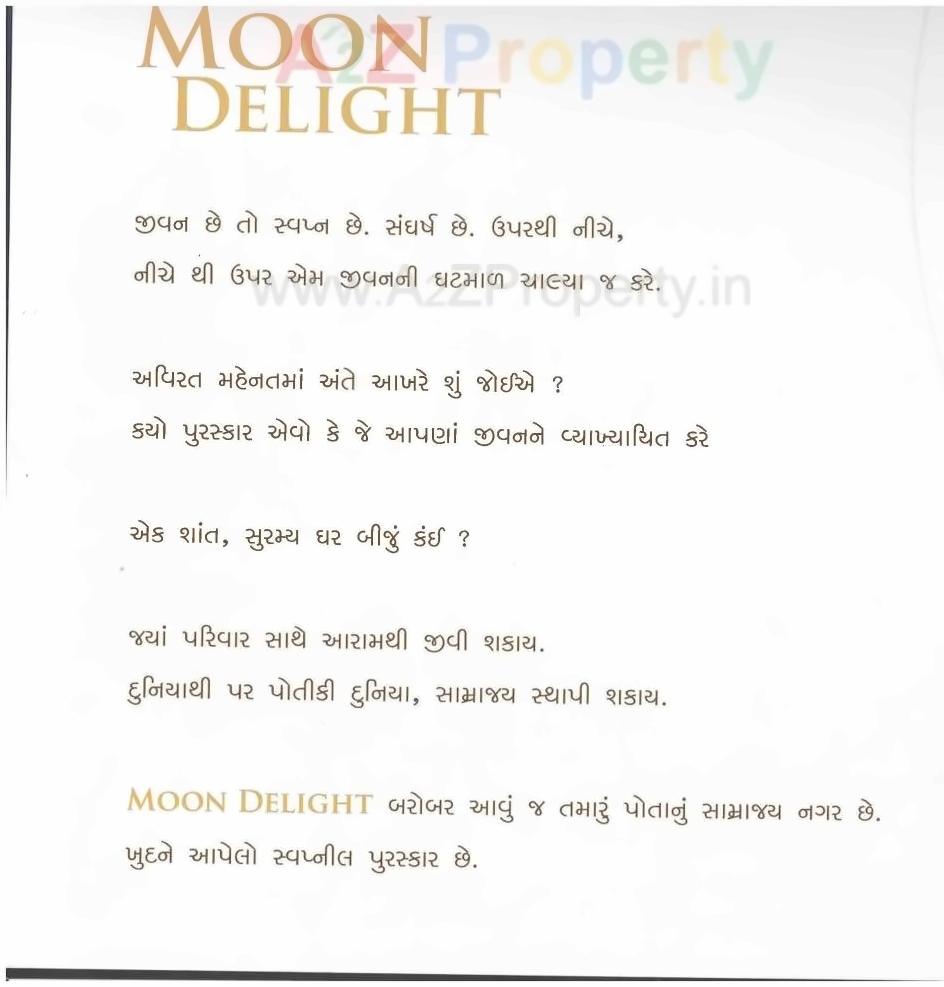 MOON
DELIGHT
A2Z Property
જીવન છે તો સ્વપ્ન છે. સંઘર્ષ છે. ઉપરથી નીચે,
નીચે થી ઉપર એમ જીવનની ઘટમાળ ચાલ્યા જ કરે.
www.A2ZProperty.in
અવિરત મહેનતમાં અંતે આખરે શું જોઈએ ?
કયો પુરસ્કાર એવો કે જે આપણાં જીવનને વ્યાખ્યાયિત કરે
એક શાંત, સુરમ્ય ઘર બીજું કંઈ ?
જ્યાં પરિવાર સાથે આરામથી જીવી શકાય.
દુનિયાથી પર પોતીકી દુનિયા, સામ્રાજ્ય સ્થાપી શકાય.
MOON DELIGHT બરોબર આવું જ તમારું પોતાનું સામ્રાજ્ય નગર છે.
ખુદને આપેલો સ્વપ્નીલ પુરસ્કાર છે.